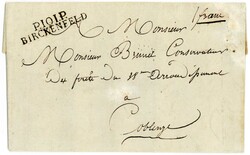 P.101.P.
BIRCKENFELD
franc
A Monsieur
Monsieur Conservateur
des forêts du 11e Arrondissement
a
Coblence